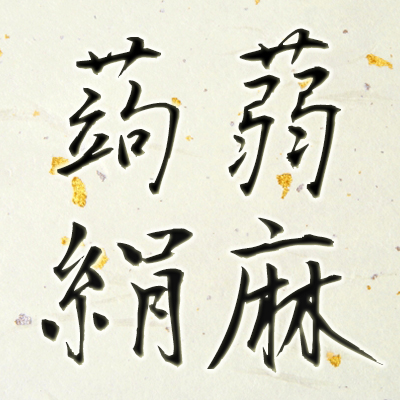 蒟蒻
絹麻